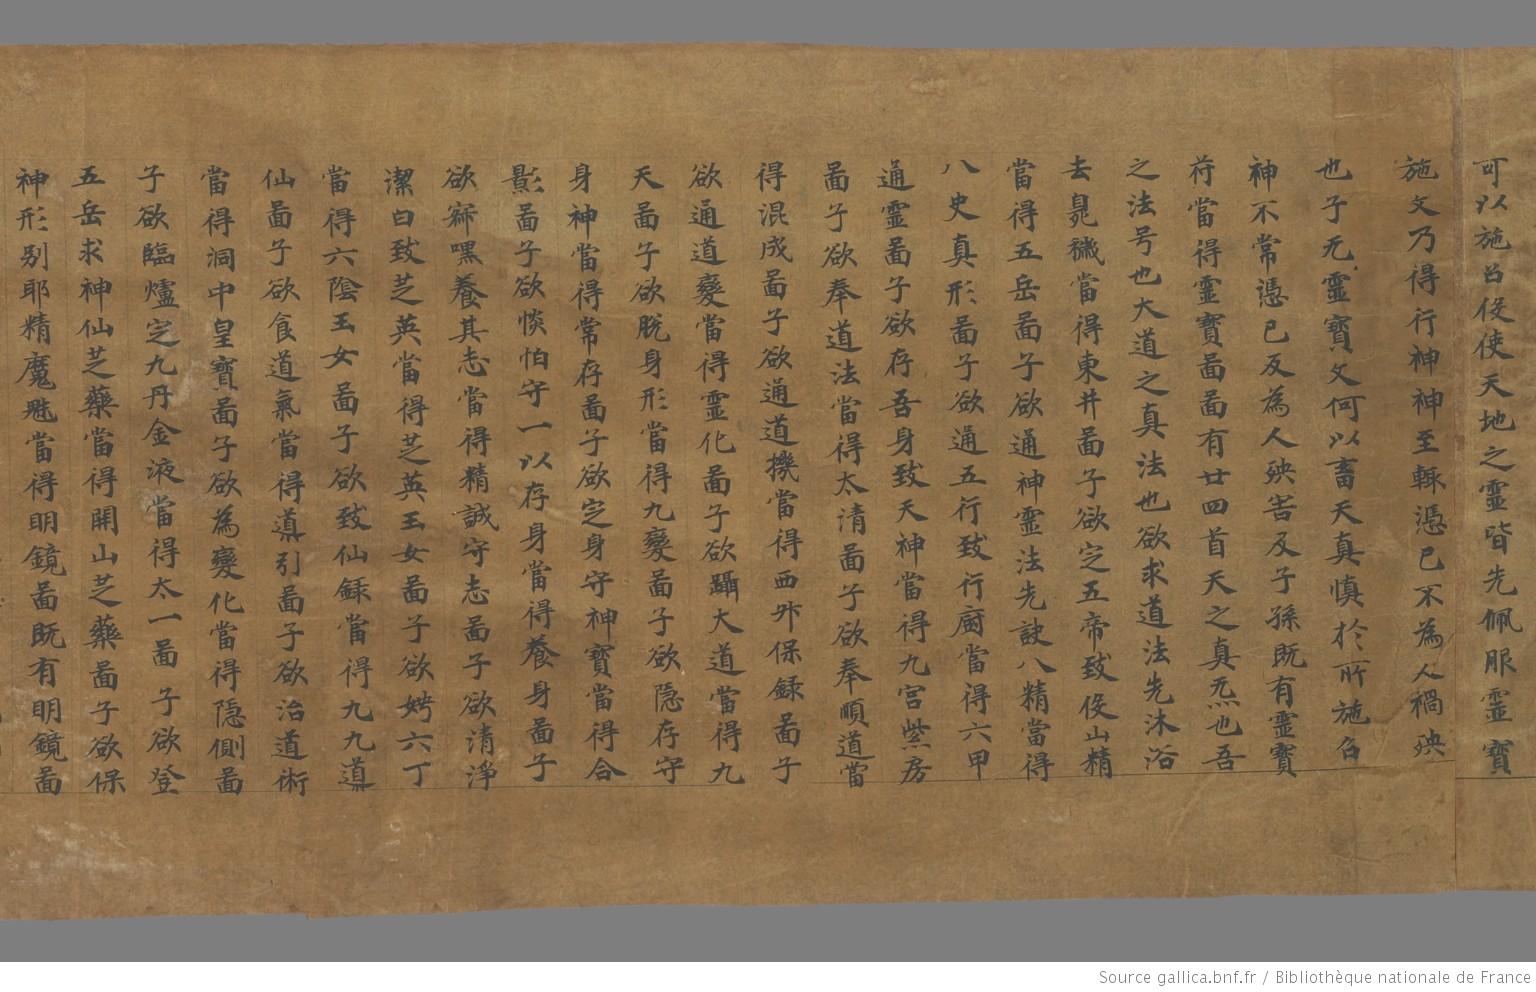 可以施召役使天地之靈皆先佩服靈寶
施文乃得行神神至輙憑已不為人禍殃
也子无靈寶文何以畜天真慎於所施召
神不常憑已反為人殃咎及子孫既有靈寶
苻當得靈寶啚啚有廿四首天之真炁也吾
之法号也大道之真法也欲求道法先沐浴
去臰穢當得東井啚子欲定五帝致役山精
當得五岳啚子欲通神靈法先訣八精當得
八史真形啚子欲通五行致行廚當得六甲
通靈啚子欲存吾身致天神當得九宮紫房
啚子欲奉道法當得太清啚子欲奉順道當
得混成啚子欲通道機當得西升保録啚子
欲通道變當得靈化啚子欲躡大道當得九
天啚子欲脫身形當得九變啚子欲隱存守
身神當得常存啚子欲定身守神寶當得合
景啚子欲惔怕守一以存身當得養身啚子
欲寂嘿養其志當得精誠守志啚子欲清淨
潔白致芝英當得芝英玉女啚子欲娉六丁
當得六陰玉女啚子欲致仙録當得九九道
仙啚子欲食道氣當得導引啚子欲治道術
當得洞中皇寶啚子欲為變化當得隱側啚
子欲臨爐定九丹金液當得太一啚子欲登
五岳求神仙芝藥當得開山芝藥啚子欲保
神形別耶精魔魅當得明鏡啚既有明鏡啚
Source gallica.bnf.fr / Bibliothèque nationale de France